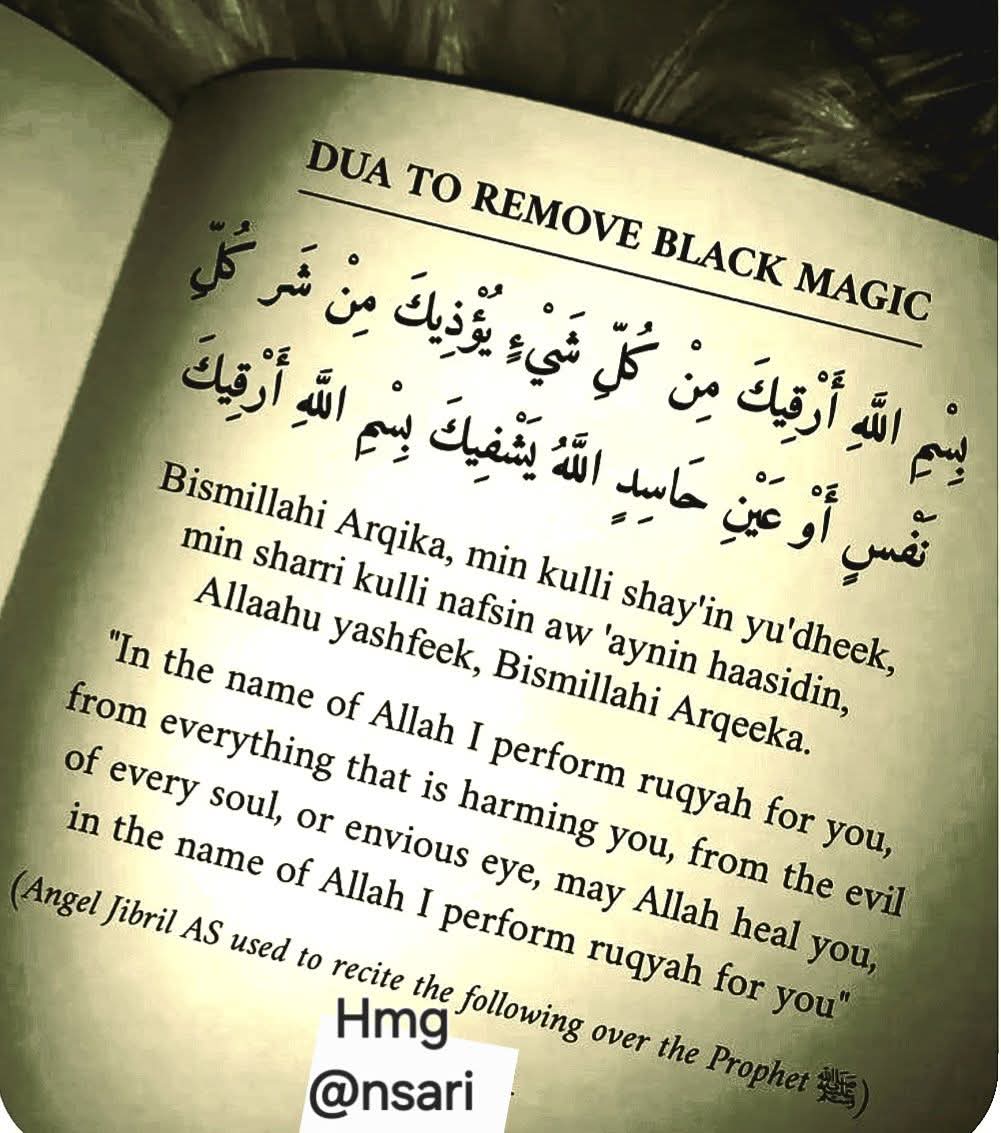 DUA TO REMOVE BLACK MAGIC
بِسْمِ اللَّهِ أَرْقِيكَ مِنْ كُلِّ شَيْءٍ يُؤْذِيكَ مِنْ شَر كُلِّ
نَفْسٍ أَوْ عَيْنِ حَاسِدٍ اللَّهُ يَشْفِيكَ بِسْمِ اللَّهِ أَرْقِيكَ
Bismillahi Arqika, min kulli shay'in yu'dheek,
min sharri kulli nafsin aw 'aynin haasidin,
Allaahu yashfeek, Bismillahi Arqeeka.
"In the name of Allah I perform ruqyah for you,
from everything that is harming you, from the evil
of every soul, or envious eye, may Allah heal you,
in the name of Allah I perform ruqyah for you"
(Angel Jibril AS used to recite the following over the Prophet ﷺ)
Hmg
@nsari